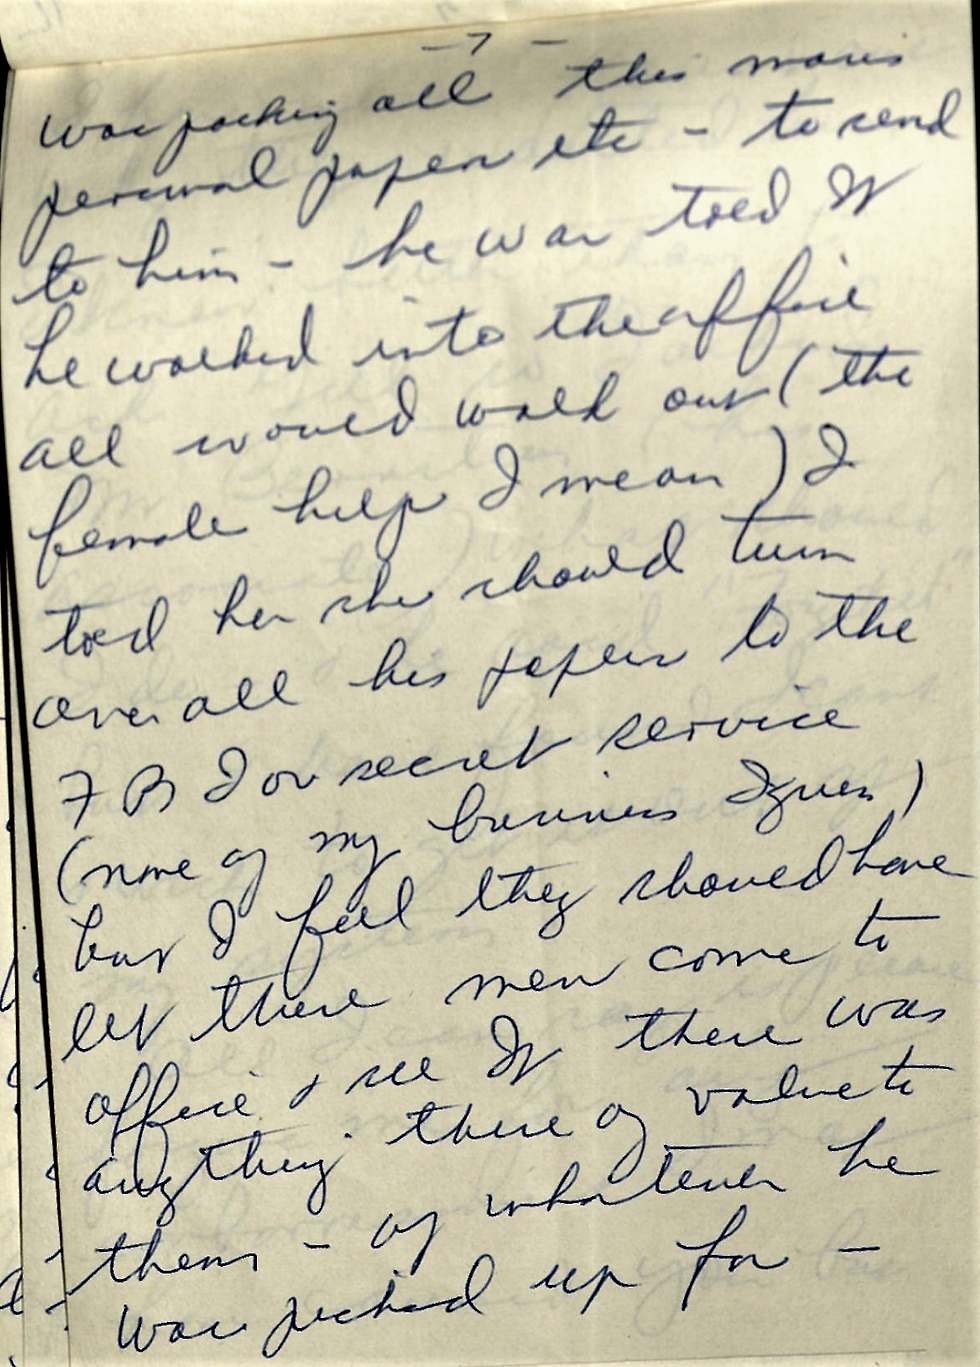 - 7 -
was packing all this mans
personal papers etc - to send
to him - he was told If
he walked into the office
all would walk out ( the
female help I mean ) I
told her she should turn
over all his papers to the
F B I or secret service
(none of my business I guess)
but I feel they should have
let these men come to
office & see If there was
anything there of value to
them - of whatever he
was picked up for -